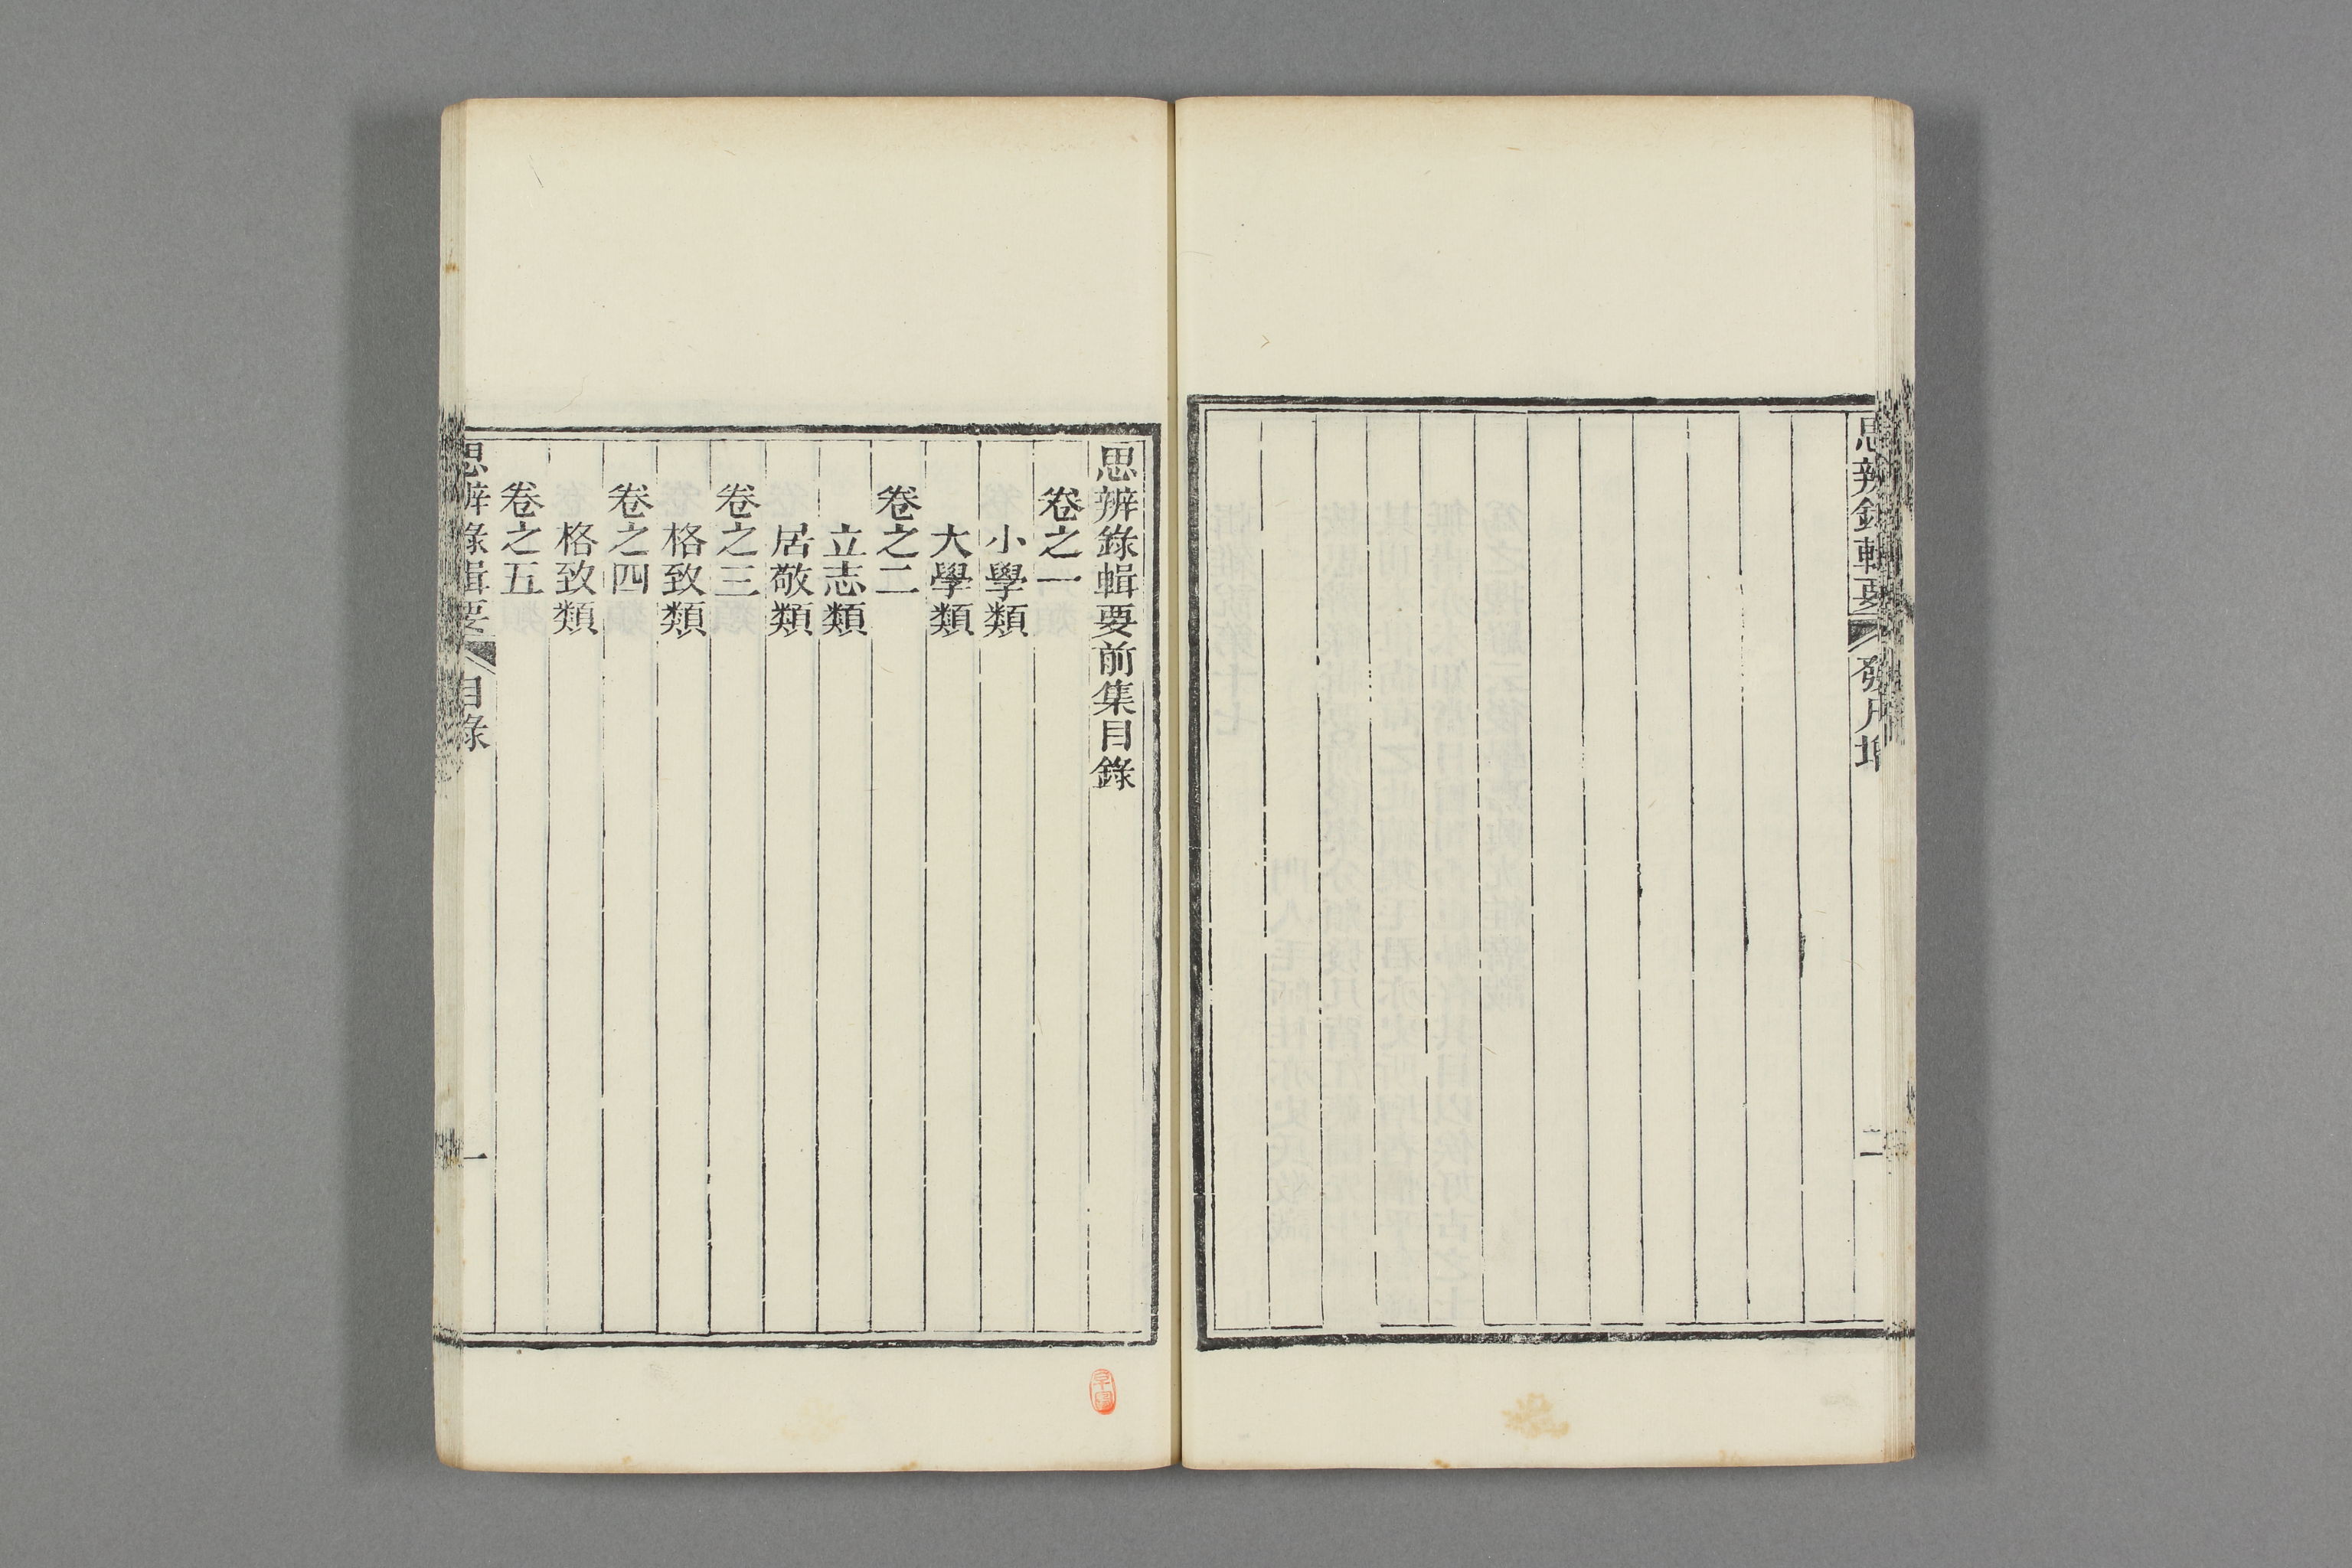 思辨錄輯要
二
思辨錄輯要前集目錄
卷之一
小學類
大學類
卷之二
立志類
居敬類
卷之三
格致類
卷之四
格致類
卷之五
思辨錄輯要
目錄
一